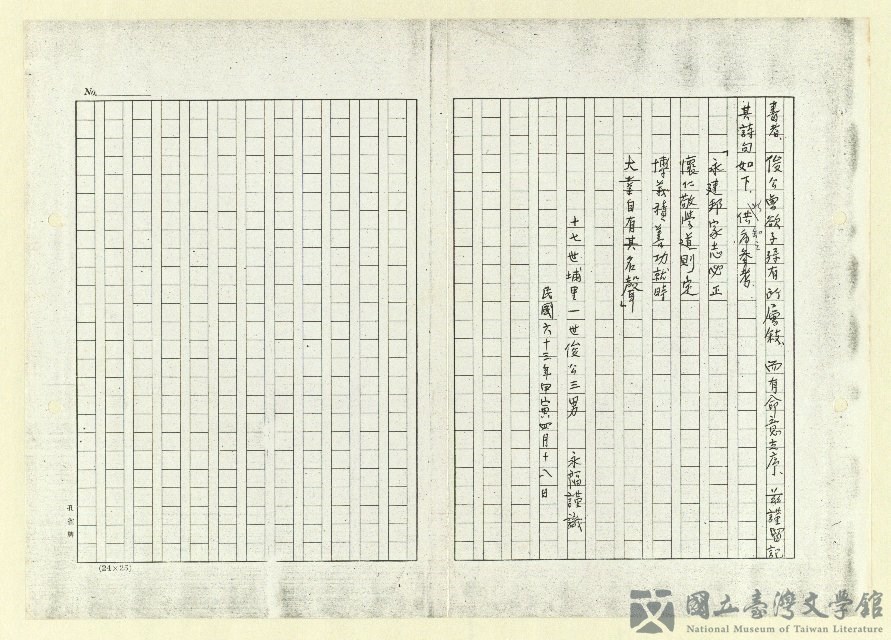 書者、俊公曾欲子孫有所層敍、而有命意之序、茲謹留記
其詩句如下、供為參考、
「永建邦家志必正
懷仁敬學道則定
博義積善功就時
大業自有其名聲」
十七世埔里一世俊公三男 永 謹識
民國六十三年甲寅四月十八日
No.
(24×25)
國立臺灣文學館
National Museum of Taiwan Literature